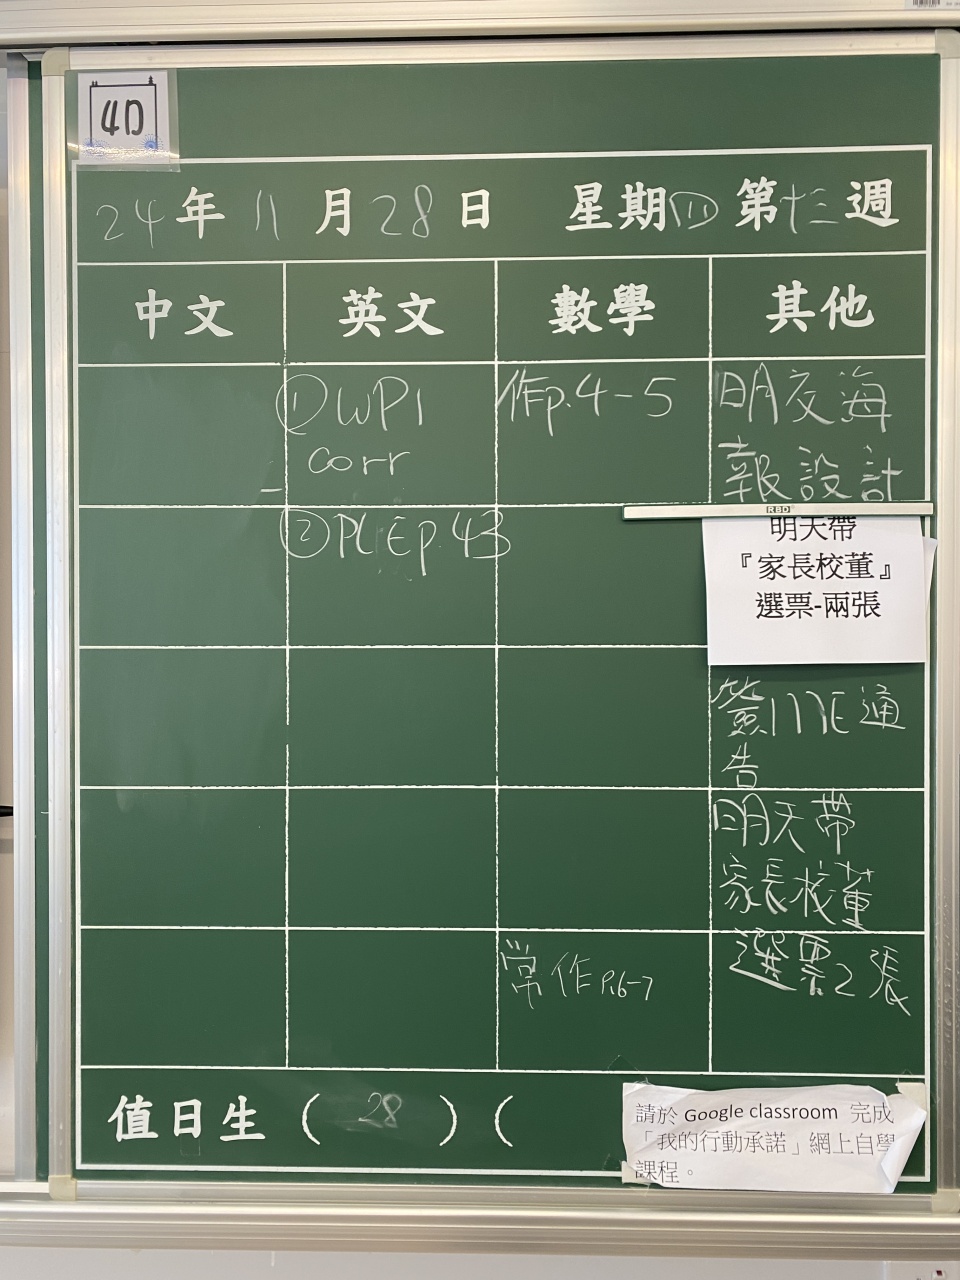 4D
24年11月28日 星期四 第十三週
中文 英文 數學 其他
①WP1 作p.4-5 明交海
corr 報設計
RBD
②PCEp.43 明天帶
『家長校董』
選票-兩張
簽 通
告
明天帶
家長校董
常作P.6-7 選票2張
值日生 ( 28 ) (
請於 Google classroom 完成
「我的行動承諾」網上自學
課程。